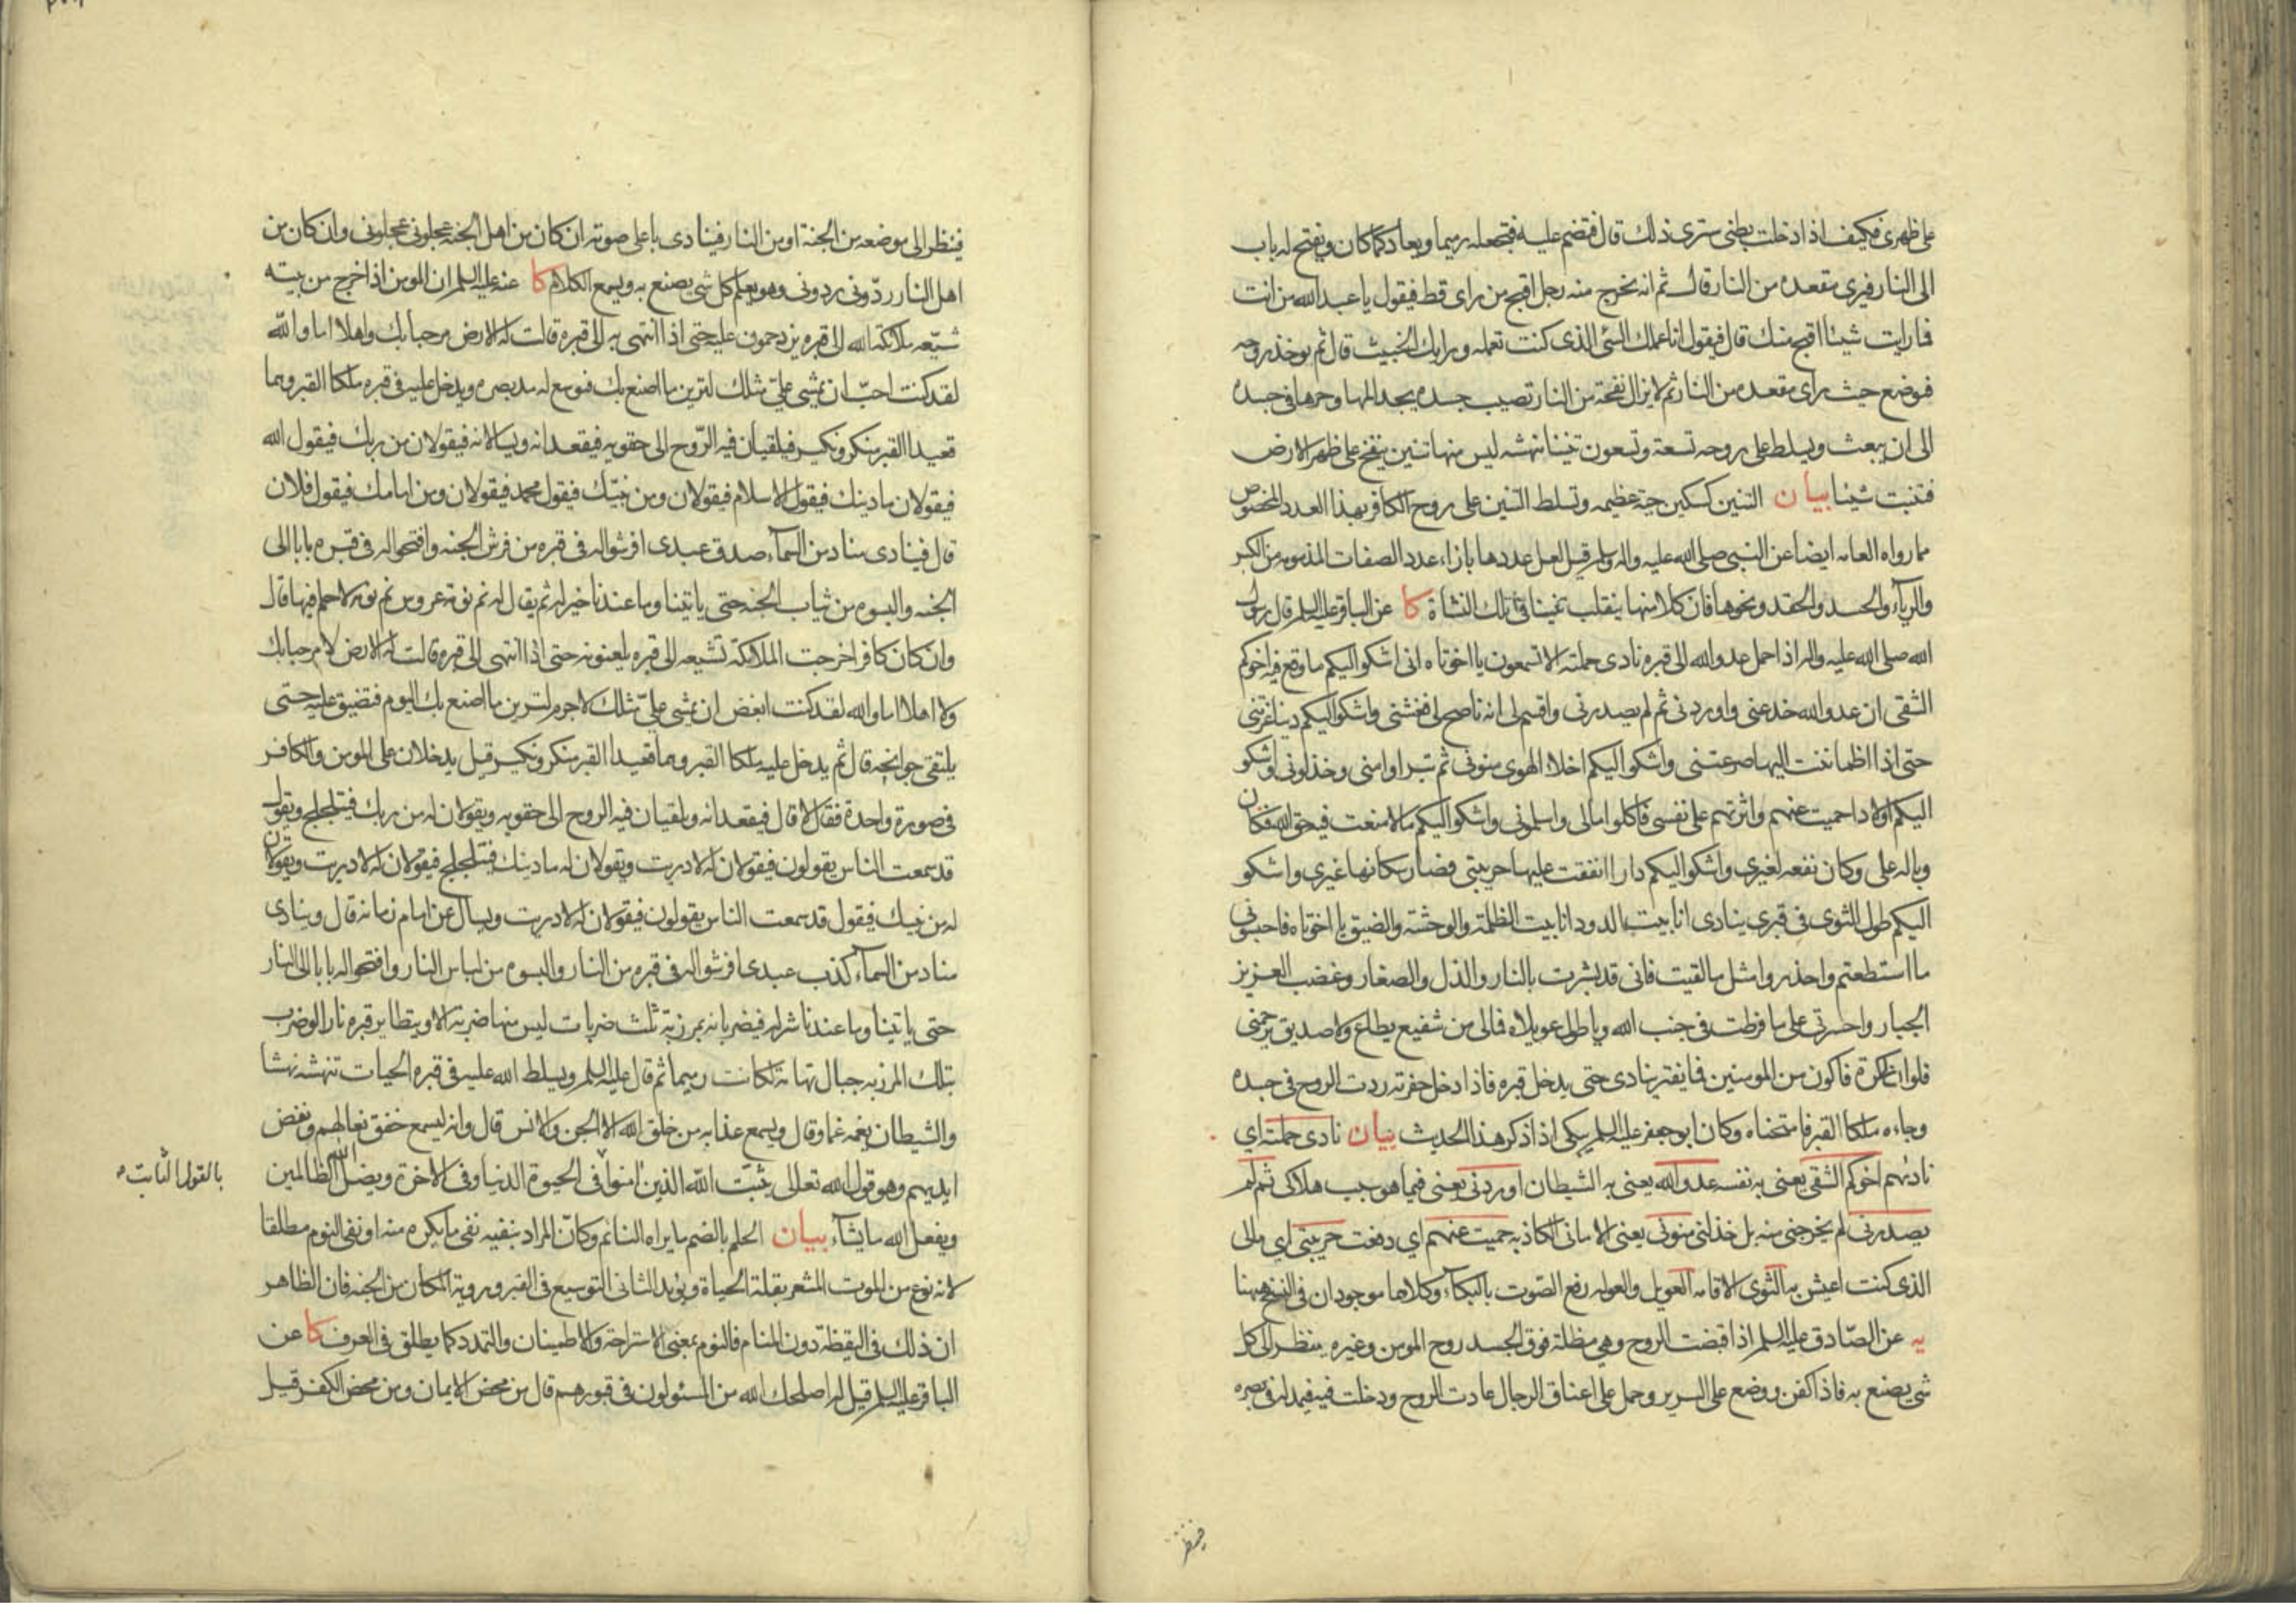 على ظهرى فكيف اذا دخلت بطنى سترى ذلك قال فتضم عليه فتجعله رميما ويعاد كما كان ويفتح له باب
الى النار فيرى مقعده من النار قال ثم انه يخرج منه رجل اقبح من راى قط فيقول يا عبد الله من انت
ما رايت شيئا اقبح منك قال فيقول انا عملك السّئ الذى كنت تعمله ورايك الخبيث قال ثم يوخذ روحه
فوضع حيث راى مقعده من النار ثم لا يزال نفخة من النار تصيب جسده يجد المها وحرها فى جسده
الى ان يبعث ويسلط على روحه تسعة وتسعون تنينا تنهشه ليس منها تنين ينفخ على ظهر الارض
فتنبت شيئا بيان التنين كسكين حية عظيمه وتسلط التنين على روح الكافر بهذا العدد المخصوص
مما رواه العامه ايضا عن النبى صلى الله عليه واله وسلم قيل لعل عددها بازاء عدد الصفات المذمومه من الكبر
والرياء والحسد والحقد ونحوها فان كلا منها ينقلب تنينا فى تلك النشاة كا عن الباقر عليه السلم قال رسول
الله صلى الله عليه واله اذا حمل عدو الله الى قبره نادى حملته الا تسمعون يا اخوتاه انى اشكو اليكم ما وقع فيه اخوكم
الشقى ان عدو الله خدعنى واوردنى ثم لم يصدرنى واقسم لى انه ناصح لى فغشنى واشكو اليكم دنيا غرتنى
حتى اذا اطماننت اليها صرعتنى واشكو اليكم اخلاء الهوى منونى ثم تبراوا منى وخذلونى واشكو
اليكم اولادا حميت عنهم واثرتهم على نفسى فاكلوا مالى واسلمونى واشكو اليكم مالا منعت فيه حق الله فكان
وباله على وكان نفعه لغيرى واشكو اليكم دارا انفقت عليها حريبتى فصار سكانها غيرى واشكو
اليكم طول الثوى فى قبرى ينادى انا بيت الدود انا بيت الظلمة والوحشة والضيق يا اخوتاه فاحبسونى
ما استطعتم واحذروا مثل ما لقيت فانى قد بشرت بالنار والذل والصغار وغضب العزيز
الجبار واحسرتى على ما فرطت فى جنب الله ويا طول عويلاه فما لى من شفيع يطاع ولا صديق يرحمنى
فلو ان لى كرة فاكون من المومنين فما يفتر ينادى حتى يدخل قبره فاذا دخل حفرته ردت الروح فى جسده
وجاءه ملكا القبر فامتحناه وكان ابو جعفر عليه السلم يبكى اذا ذكر هذا الحديث بيان نادى حملته اي
نادئهم اخوكم الشقى يعنى به نفسه عدو الله يعنى به الشيطان اوردنى يعنى فيما هو سبب هلاكى ثم لم
يصدرنى لم يخرجنى منه بل خذلنى منونى يعنى الامانى الكاذبه حميت عنهم اي دفعت حريبتى اي مالى
الذى كنت اعيش به الثوى الاقامه العويل والعوله رفع الصّوت بالبكاء وكلاهما موجودان فى النسخ ههنا
يه عن الصّادق عليه السلم اذا قبضت الروح وهي مظلة فوق الجسد روح المومن وغيره ينظر الى كل
شى يصنع به فاذا كفن ووضع على السرير وحمل على اعناق الرجال عادت الروح ودخلت فيه فيمد له فى بصره
فينظر
فينظر الى موضعه من الجنة او من النار فينادى باعلى صوته ان كان من اهل الجنة عجلونى عجلونى وان كان من
اهل النار ردّونى ردونى وهو يعلم كل شى يصنع به ويسمع الكلام كا عنه عليه السلم ان المومن اذا اخرج من بيته
شيّعه ملائكة الله الى قبره يزدحمون عليه حتى اذا انتهى به الى قبره قالت له الارض مرحبا بك واهلا اما والله
لقد كنت احبّ ان يمشى علىّ مثلك لترين ما اصنع بك فتوسع له مد بصره ويدخل عليه فى قبره ملكا القبر وهما
قعيدا القبر منكر ونكير فيلقيان فيه الرّوح الى حقويه فيقعدانه ويسالانه فيقولان من ربك فيقول الله
فيقولان ما دينك فيقول الاسلام فيقولان ومن نبيّك فيقول محمد فيقولان ومن امامك فيقول فلان
قال فينادى مناد من السماء صدق عبدى افرشوا له فى قبره من فرش الجنه وافتحوا له فى قبره بابا الى
الجنه والبسوه من ثياب الجنه حتى ياتينا وما عندنا خير له ثم يقال له نم نومة عروس نم نومة لا حلم فيها قال
وان كان كافرا خرجت الملائكة تشيعه الى قبره يلعنونه حتى اذا انتهى الى قبره قالت له الارض لا مرحبا بك
ولا اهلا اما والله لقد كنت ابغض ان يمشى علىّ مثلك لا جرم لترين ما اصنع بك اليوم فتضيق عليه حتى
يلتقى جوانحه قال ثم يدخل عليه ملكا القبر وهما قعيدا القبر منكر ونكير قيل يدخلان على المومن والكافر
فى صورة واحدة فقال لا قال فيقعدانه ويلقيان فيه الروح الى حقويه ويقولان له من ربك فيتلجلج ويقول
قد سمعت الناس يقولون فيقولان له لا دريت ويقولان له ما دينك فيتلجلج فيقولان له لا دريت ويقولان
له من نبيك فيقول قد سمعت الناس يقولون فيقولان له لا دريت ويسال عن امام زمانه قال وينادى
مناد من السماء كذب عبدى افرشوا له فى قبره من النار والبسوه من لباس النار وافتحوا له بابا الى النار
حتى ياتينا وما عندنا شر له فيضربانه بمرزبة ثلث ضربات ليس منها ضربة الا ويتطاير قبره نارا لو ضرب
بتلك المرزبه جبال تهامة لكانت رميما ثم قال عليه السلم ويسلط الله عليه فى قبره الحيات تنهشه نهشا
والشيطان يغمه غما وقال ويسمع عذابه من خلق الله الا الجن والانس قال وانه ليسمع خفق نعالهم ونفض
ايديهم وهو قول الله تعالى يثبّت الله الذين امنوا فى الحيوة الدنيا وفى الاخرة ويضل الله الظالمين
بالقول الثابت
ويفعل الله ما يشاء بيان الحلم بالضم ما يراه النائم وكانّ المراد بنفيه نفى ما يكره منه او نفى النوم مطلقا
لانه نوع من الموت المشعر بقلة الحياة ويؤيد الثانى التوسيع فى القبر وروية المكان من الجنه فان الظاهر
ان ذلك فى اليقظة دون المنام فالنوم بمعنى الاستراحة والاطمينان والتمدد كما يطلق فى العرف كا عن
الباقر عليه السلم قيل له اصلحك الله من المسئولون فى قبورهم قال من محض الايمان ومن محض الكفر قيل